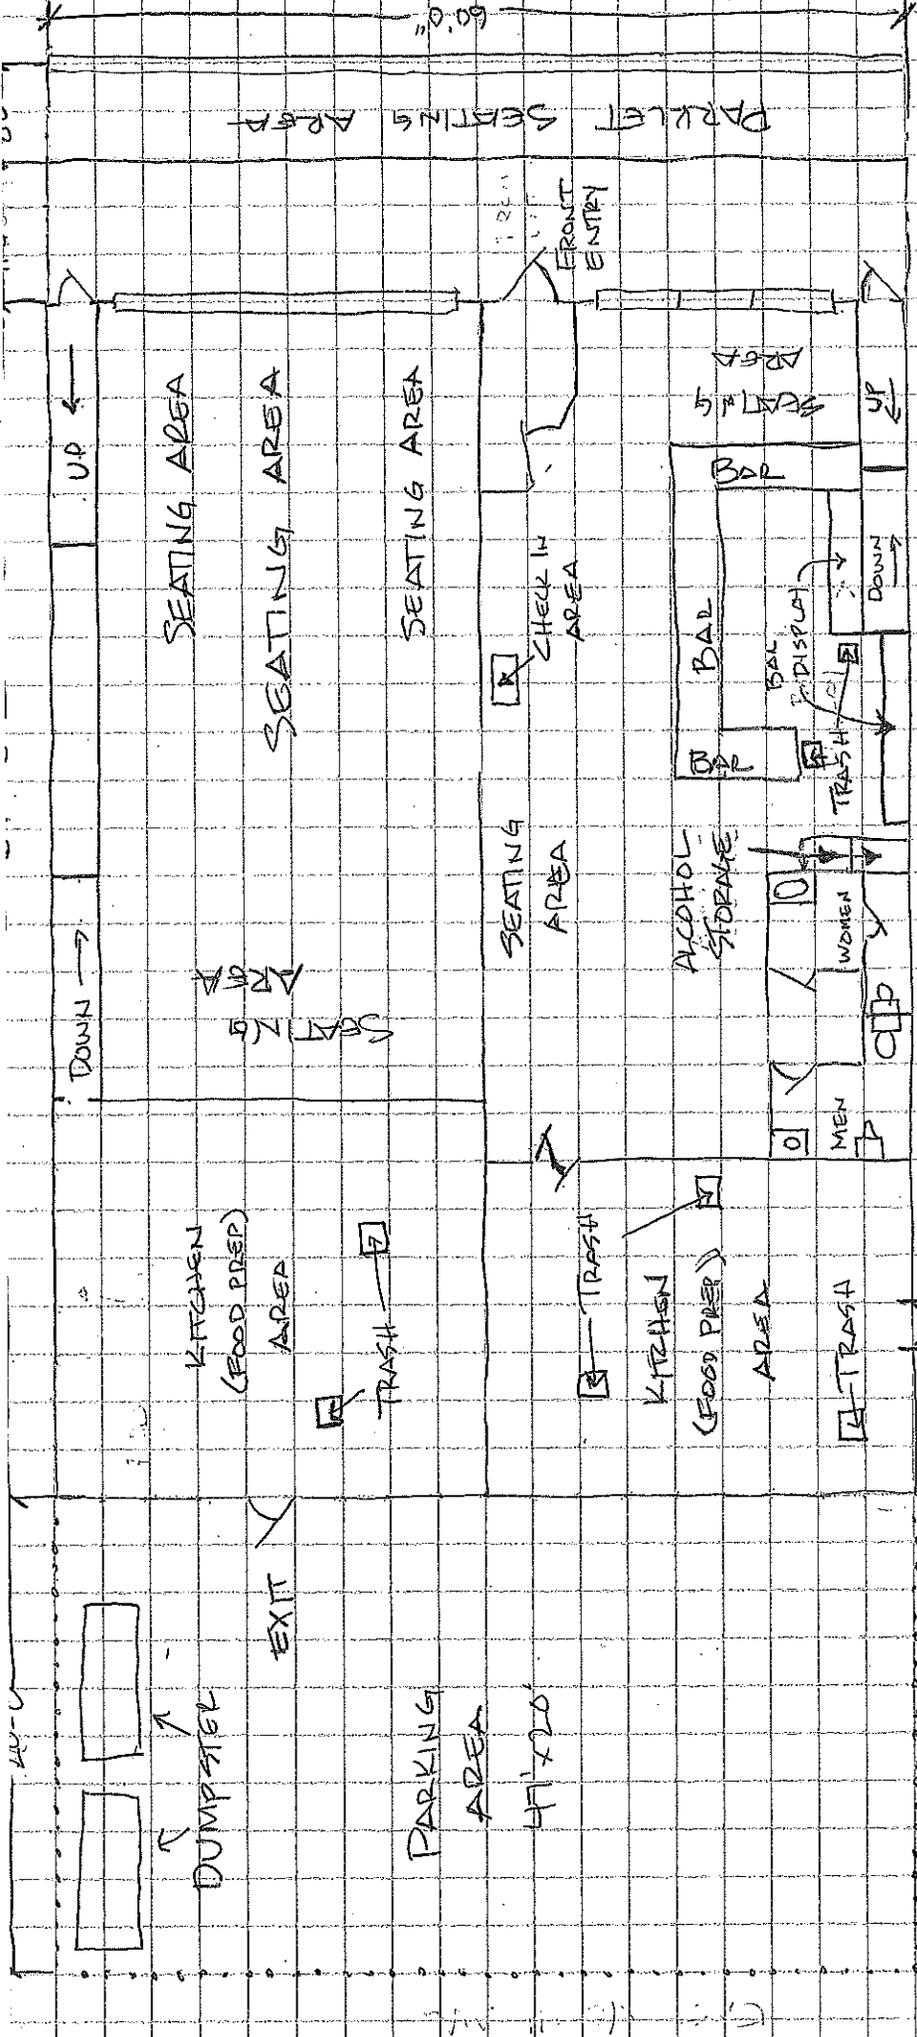 60'0"
PARKLET SEATING AREA
FRONT
ENTRY
UP
SEATING AREA
SEATING AREA
SEATING AREA
SEATING
AREA
UP
BAR
BAR
BAR
CHECK IN
AREA
BAR
DISPLAY
DOWN
TRASH
SEATING
AREA
ALCOHOL
STORAGE
WOMEN
MEN
DOWN
SEATING
AREA
KITCHEN
(FOOD PREP)
AREA
TRASH
TRASH
KITCHEN
(FOOD PREP)
AREA
TRASH
EXIT
DUMPSTER
PARKING
AREA
47'x20'